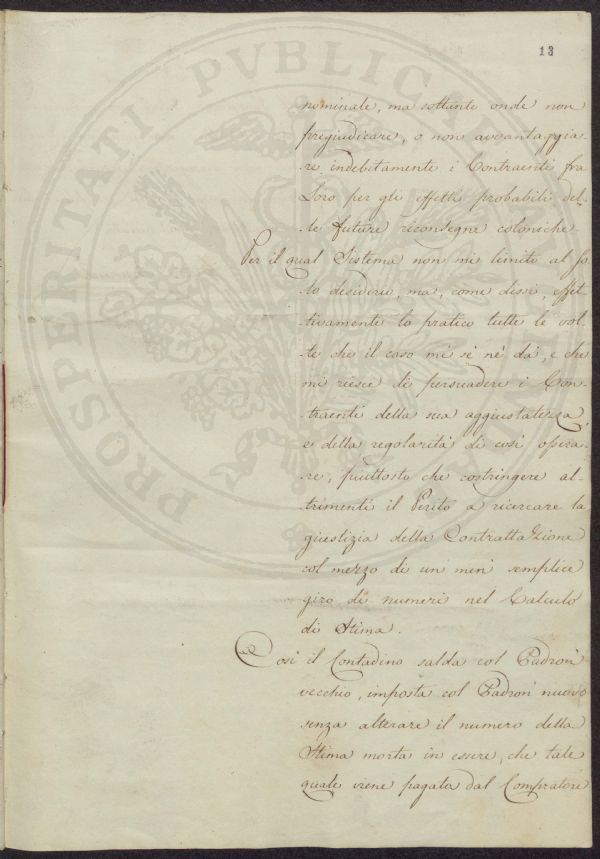 13
nominale, ma soltanto onde non
pregiudicare, o non avvantaggia-
re indebitamente i Contraenti fra
Loro per gli effetti probabili del-
le future riconsegne coloniche.
Per il qual Sistema non mi limito al so-
lo desiderio, ma, come dissi, effet-
tivamente lo pratico tutte le vol-
te che il caso mi si nè dà, e che
mi riesce di persuadere i Con-
traenti della sua aggiustatezza
e della regolarità di così opera-
re, piuttosto che costringere al-
trimenti il Perito a ricercare la
giustizia della Contrattazione
col mezzo di un men' semplice
giro di numeri nel Calcolo
di Stima.
Così il Contadino salda col Padron'
vecchio, imposta col Padron' nuovo
senza alterare il numero della
Stima morta in essere, che tale
quale viene pagata dal Compratore
PROSPERITATI PVBLICAE